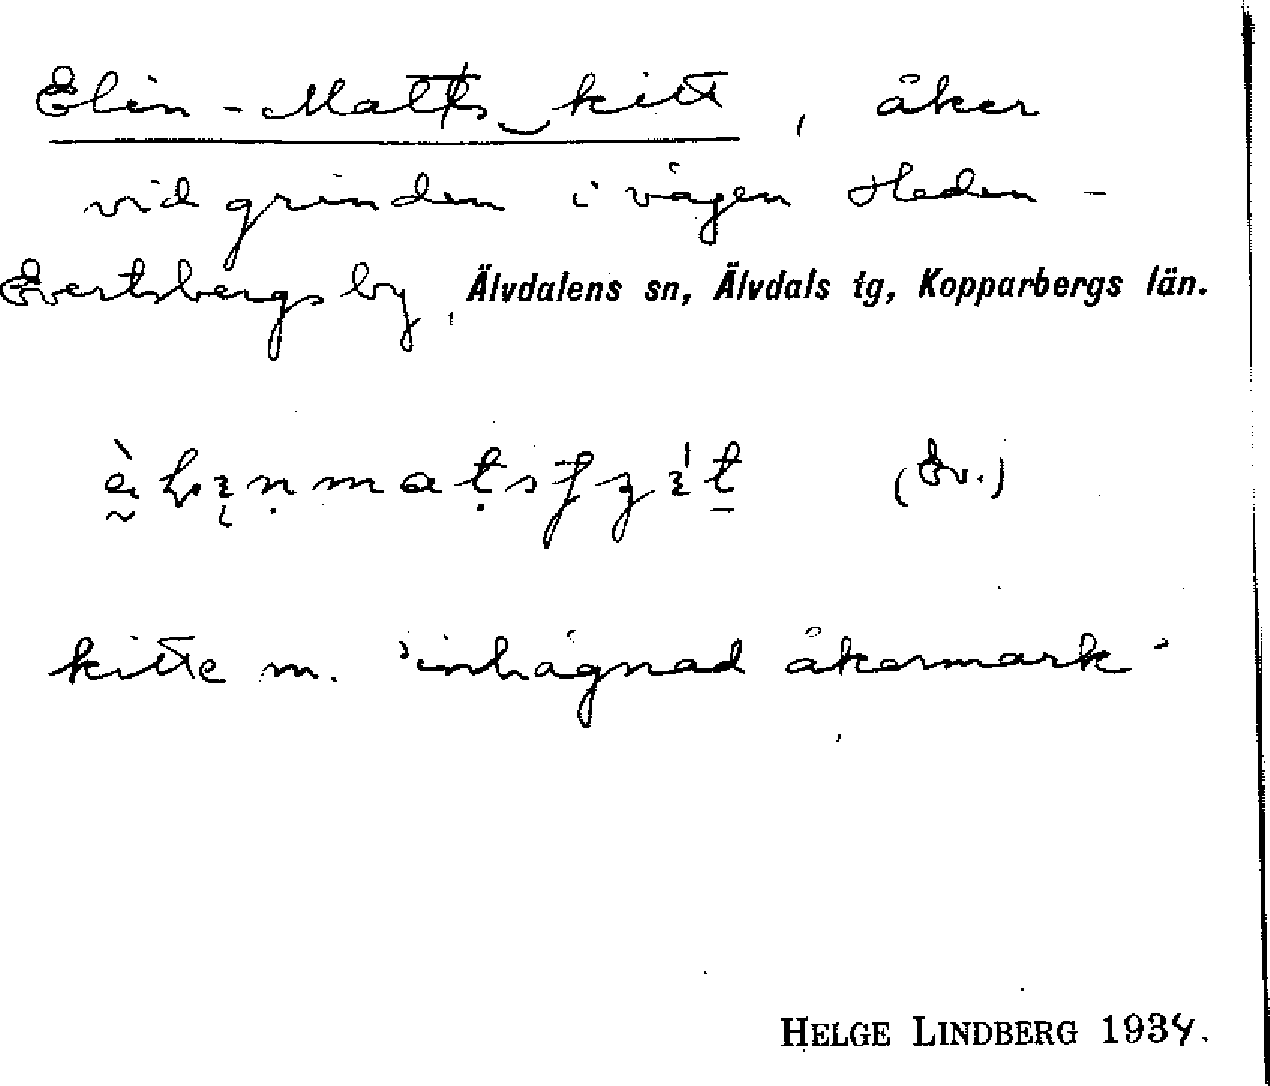 Elin-Matts kitt, åker
vid grinden i vägen Heden -
Evertsbergs by, Älvdalens sn, Älvdals tg, Kopparbergs län.
(Ev.)
kitte m. 'inhägnad åkermark'
HELGE LINDBERG 1934.